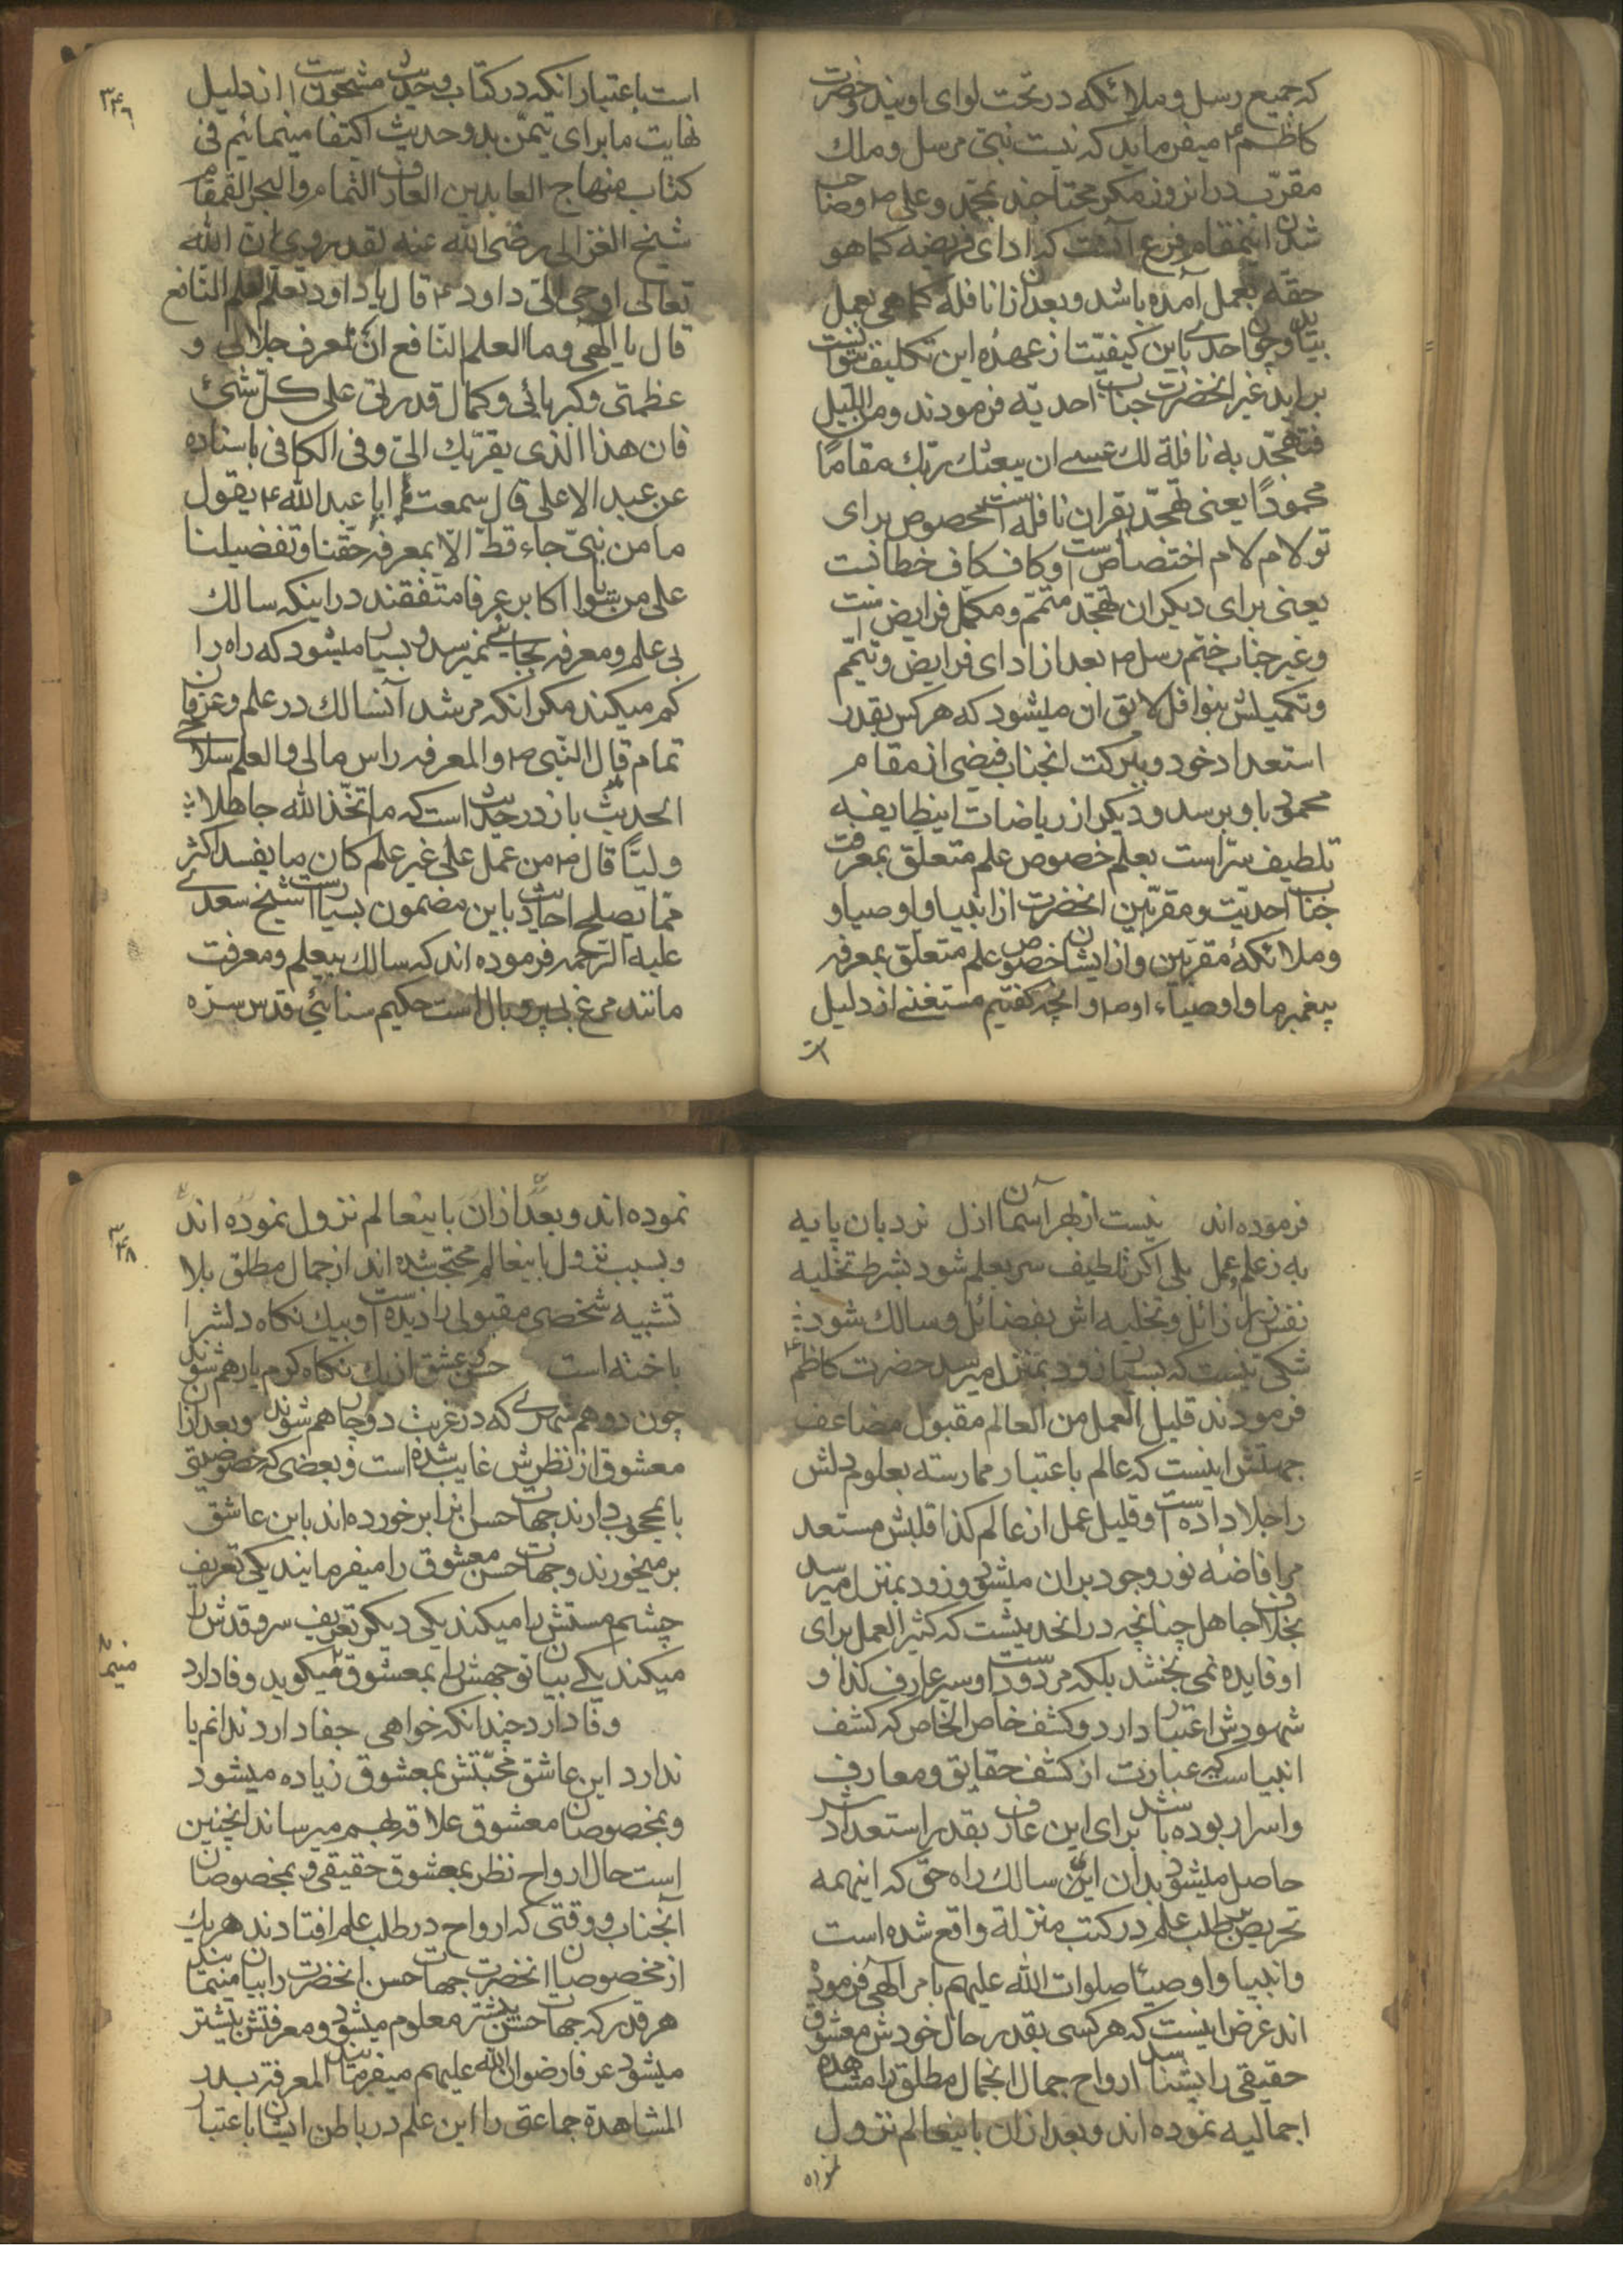 که جمیع رسل و ملائکه در تحت لوای اویند و حضرت
کاظم ع میفرماید که نیست نبی مرسل و ملک
مقرب در انروز مکر محتاجند بمحمد و علی ص و صاحب
شدن اینمقام فرع آنست که ادای فریضه کما هو
حقه بعمل آمده باشد و بعد از ان نافله کما هی بعمل
بیاید و چون احدی باین کیفیت از عهده این تکلیف نتوانست
براید غیر انحضرت جناب احدیه فرمودند ومن اللیل
فتهجد به نافلة لک عسی ان یبعثک ربک مقاما
محمودًا یعنی تهجد بقران نافله است مخصوص برای
تو لام لام اختصاص است و کاف کاف خطابست
یعنی برای دیکران تهجد متمم و مکمل فرایض است
و غیر جناب ختم رسل ص بعد از ادای فرایض و تتمیم
و تکمیلش بنوافل لایق ان میشود که هر کس بقدر
استعداد خود و ببرکت انجناب فیضی از مقام
محمود باو برسد و دیکر از ریاضات اینطایفه
تلطیف سر است بعلم خصوص علم متعلق بمعرفت
جناب احدیت و مقربین انحضرت از انبیا و اوصیا و
و ملائکهٔ مقربین و از ایشان خصوص علم متعلق بمعرفه
پیغمبر ما و اوصیاء او ص و انچه کفتیم مستغنی از دلیل
است
۳۴۶
است باعتبار انکه در کتاب و حدیث مشحونست از دلیل
نهایت ما برای تیمن بدو حدیث اکتفا مینمائیم فی
کتاب منهاج العابدین العارف التمام والبحر القمقام
شیخ الغزالی رضی الله عنه لقد روی ان الله
تعالی اوحی الی داود ع قال یا داود تعلم العلم النافع
قال یا الهی وما العلم النافع ان تعرف جلالی و
عظمتی وکبریائی وکمال قدرتی علی کل شیئ
فان هذا الذی یقربک الی وفی الکافی باسناده
عن عبد الاعلی قال سمعت ابا عبد الله ع یقول
ما من نبی جاء قط الا بمعرفه حقنا وتفضیلنا
علی من سوانا اکابر عرفا متفقند در اینکه سالک
بی علم و معرفه بجایی نمیرسد و بسیار میشود که راه را
کم میکند مکر انکه مرشد آنسالک در علم و عرفان
تمام قال النبی ص والمعرفه راس مالی والعلم سلاحی
الحدیث باز در حدیث است که ما تخذ الله جاهلا
ولیًا قال ص من عمل علی غیر علم کان ما یفسد اکثر
مما یصلح احادیث باین مضمون بسیار است شیخ سعدی
علیه الرحمه فرموده اند که سالک بیعلم و معرفت
مانند مرغ بی پر و بال است حکیم سنائی قدس سره
فرموده اند نیست از بهر آسمان ازل نردبان پایه
به ز علم و عمل بلی اکر تلطیف سر بعلم شود بشرط تخلیه
نفس از رذائل و تحلیه اش بفضائل و سالک شود
شکی نیست که بسیار زود بمنزل میرسد حضرت کاظم ع
فرمودند قلیل العمل من العالم مقبول مضاعف
جهتش اینست که عالم باعتبار ممارسته بعلوم دلش
را جلا داده است و قلیل عمل از عالم کذا قلبش مستعد
مر افاضهٔ نور وجود بران میشود و زود بمنزل میرسد
بخلاف جاهل چنانچه در انحدیثست که کثیر العمل برای
او فایده نمی بخشد بلکه مردود است و سر عارف کذا و
شهودش اعتبار دارد و کشف خاص الخاص که کشف
انبیاست که عبارت از کشف حقایق و معارف
واسرار بوده باشد برای این عارف بقدر استعداد
حاصل میشود بدان ای سالک راه حق که اینهمه
تحریص بطلب علم در کتب منزلة واقع شده است
و انبیا و اوصیا صلوات الله علیهم بامر الهی فرموده
اند غرض اینست که هر کسی بقدر حال خودش معشوق
حقیقی را بشناسد ارواح جمال انجمال مطلق را مشاهده
اجمالیه نموده اند و بعد از ان باینعالم نزول
نموده
۳۴۸
نموده اند و بعد از ان باینعالم نزول نموده اند
و بسبب نزول باینعالم محتجب شده اند از جمال مطلق بلا
تشبیه شخصی مقبولی را دیده است و بیک نکاه دلش را
باخته است حسن و عشق از یک نکاه کرم یار هم شوند
چون دو همشهری که در غربت دوچار هم شوند و بعد از ان
معشوق از نظرش غایب شده است و بعضی که خصوصیتی
با محبوب دارند جهات حسن انرا بر خورده اند باین عاشق
بر میخورند و جهات حسن معشوق را میفرمایند یکی تعریف
چشم مستش را میکند یکی دیکر تعریف سرو قدش را
میکند یکی بیان توجهش را بمعشوق میکوید وفا دارد
وفا دارد چندانکه خواهی جفا دارد ندانم یا
ندارد این عاشق محبتش بمعشوق زیاده میشود
و بمخصوصان معشوق علاقه بهم میرساند اینچنین
است حال ارواح نظر بمعشوق حقیقی و بمخصوصان
آنجناب و وقتی که ارواح در طلب علم افتادند هر یک
از مخصوصان انحضرت جهات حسن انحضرت را بیان مینمایند
هر قدر که جهات حسن بیشتر معلوم میشود و معرفتش بیشتر
میشود عرفا رضوان الله علیهم میفرمایند المعرفة بذر
المشاهدة جماعتی را این علم در باطن ایشان باعتبار